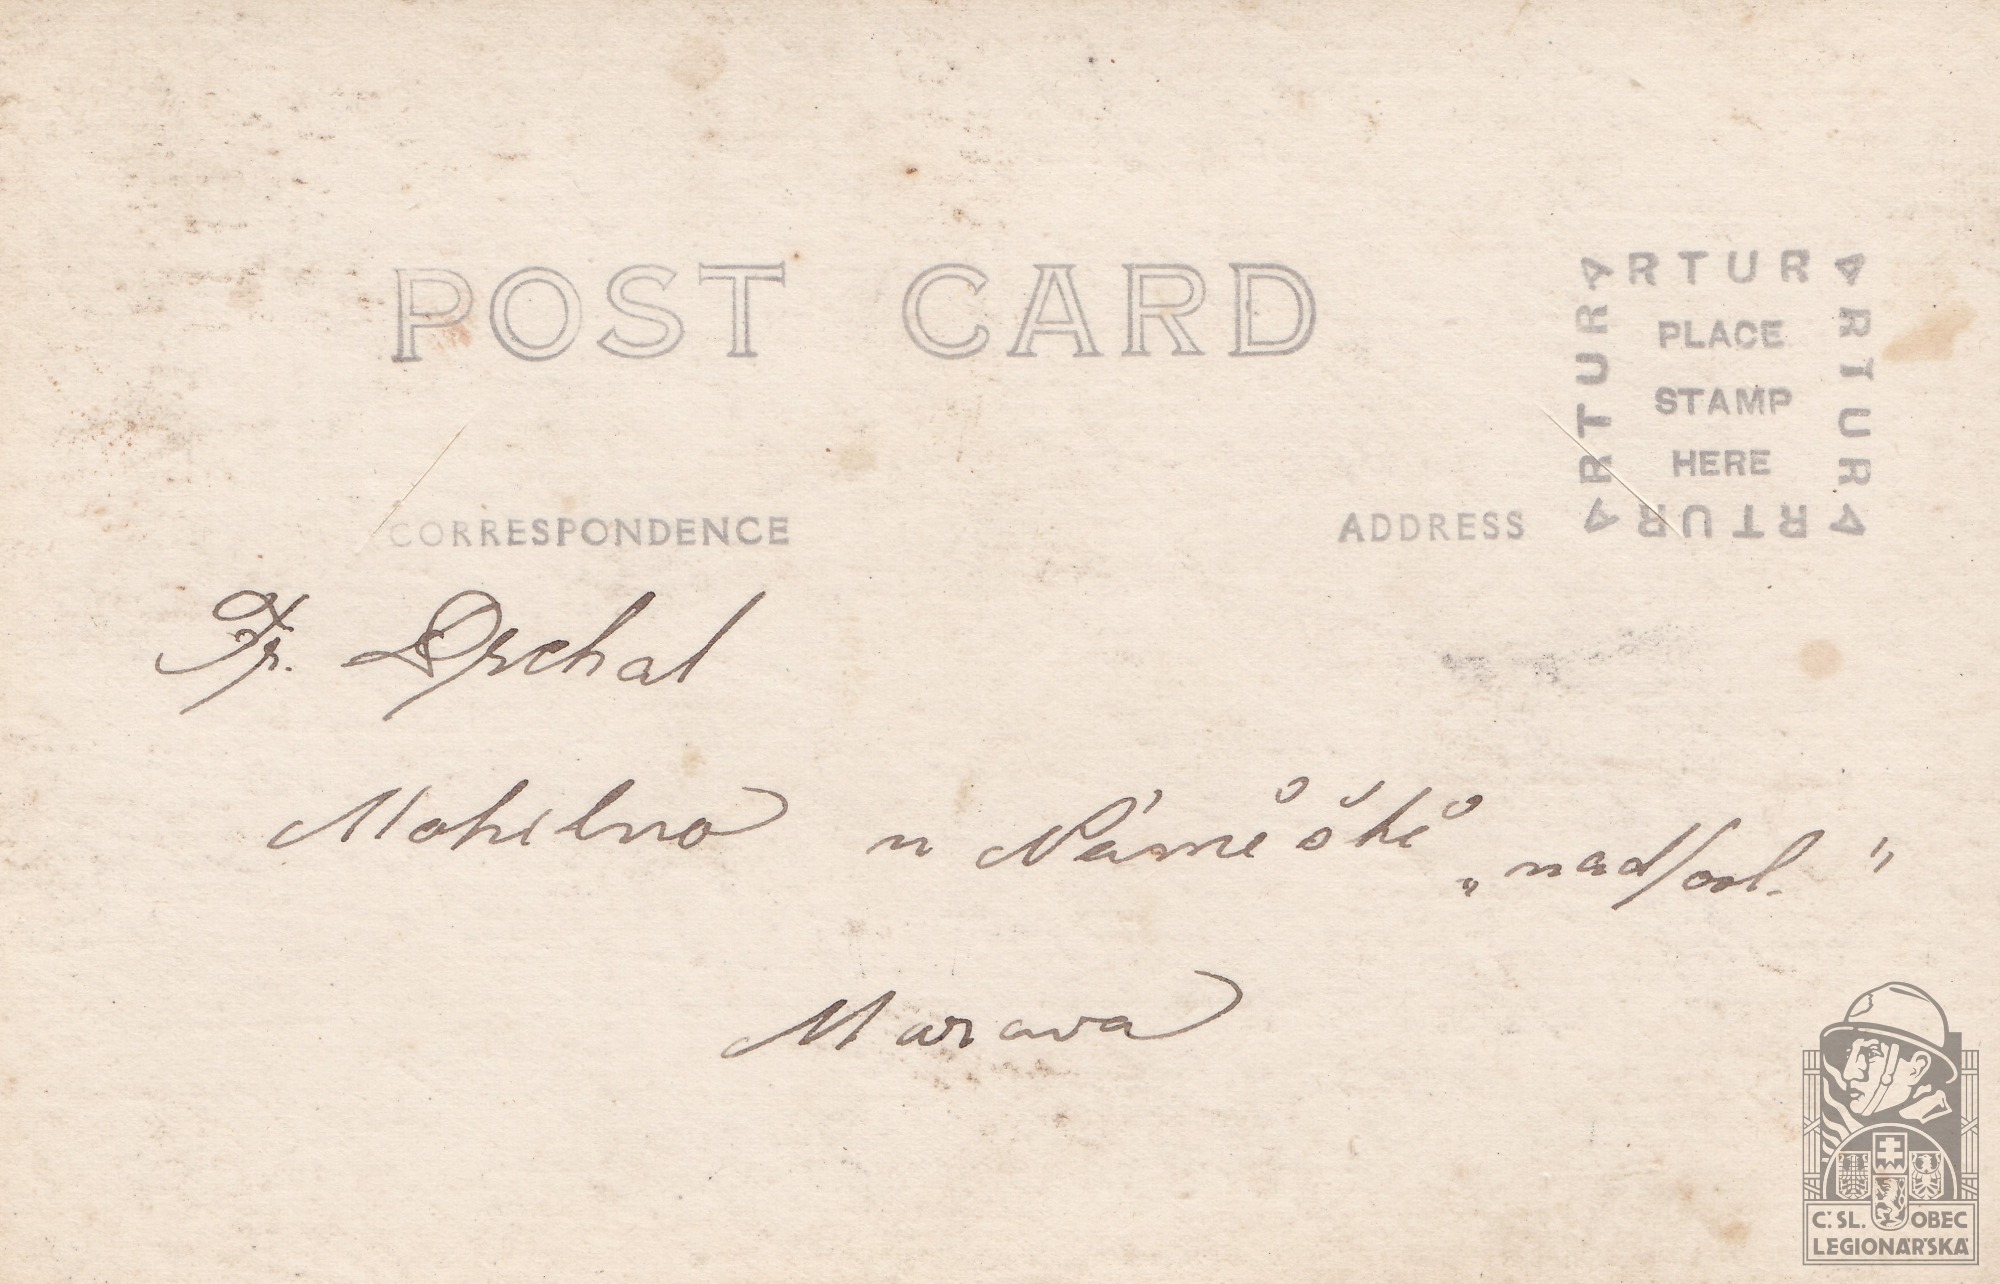 POST CARD
ARTURA
ARTURA
ARTURA
ARTURA
PLACE
STAMP
HERE
CORRESPONDENCE
ADDRESS
Fr. Drchal
Mohelno u Náměště „nad/osl.“
Morava
Č. SL. OBEC
LEGIONÁŘSKÁ